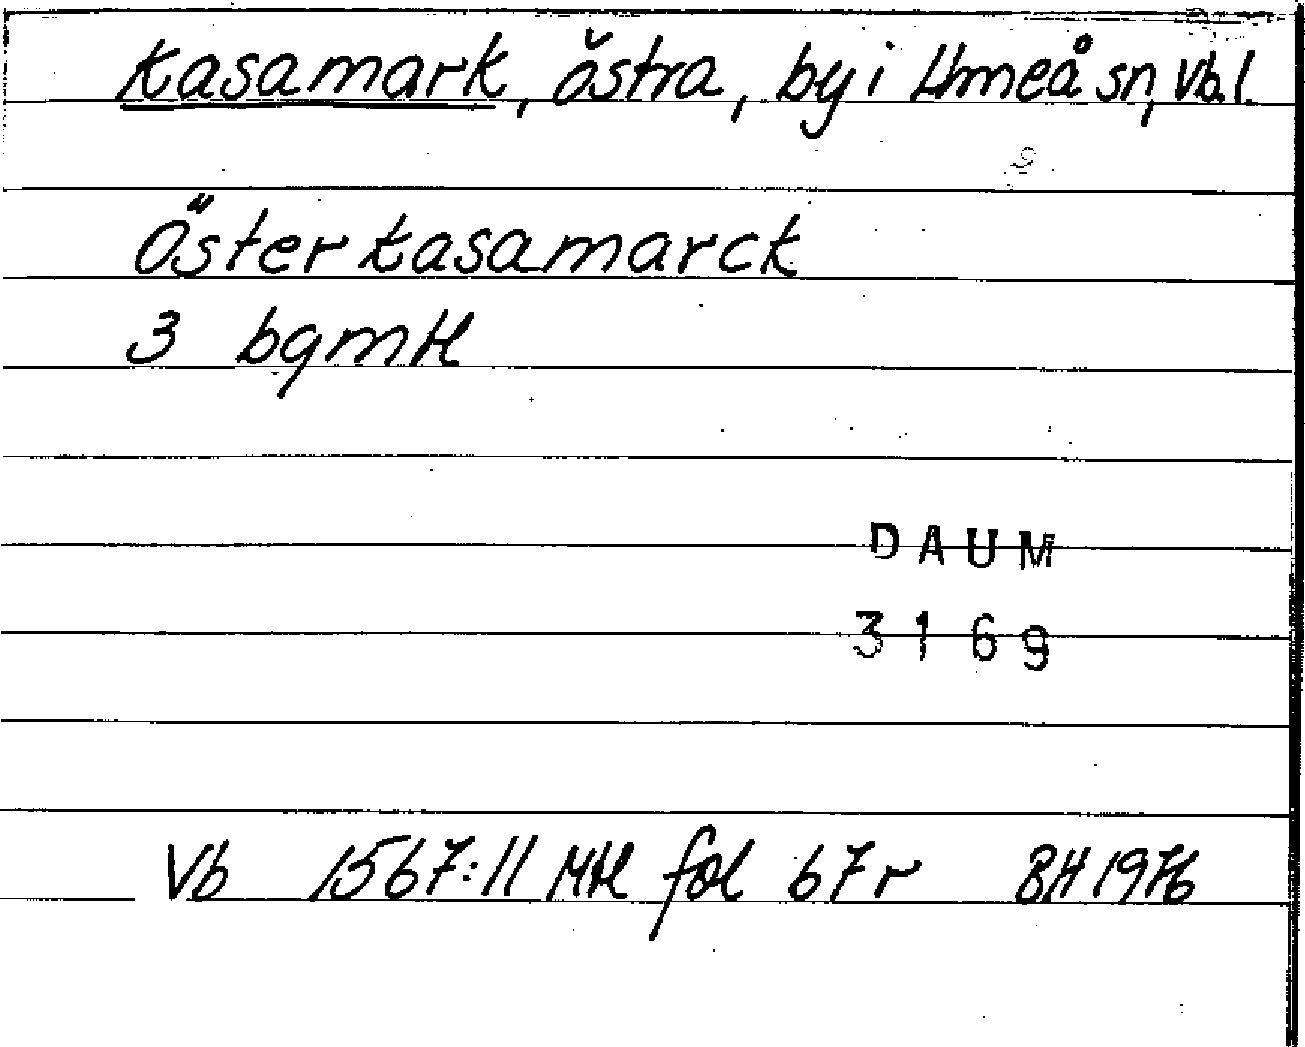 Kasamark, östra, by i Umeå sn, Vb. l.
Öster kasamarck
3 bgmtl
DAUM
3169
Vb 1567:11 Mtl fol 67r BH 1976